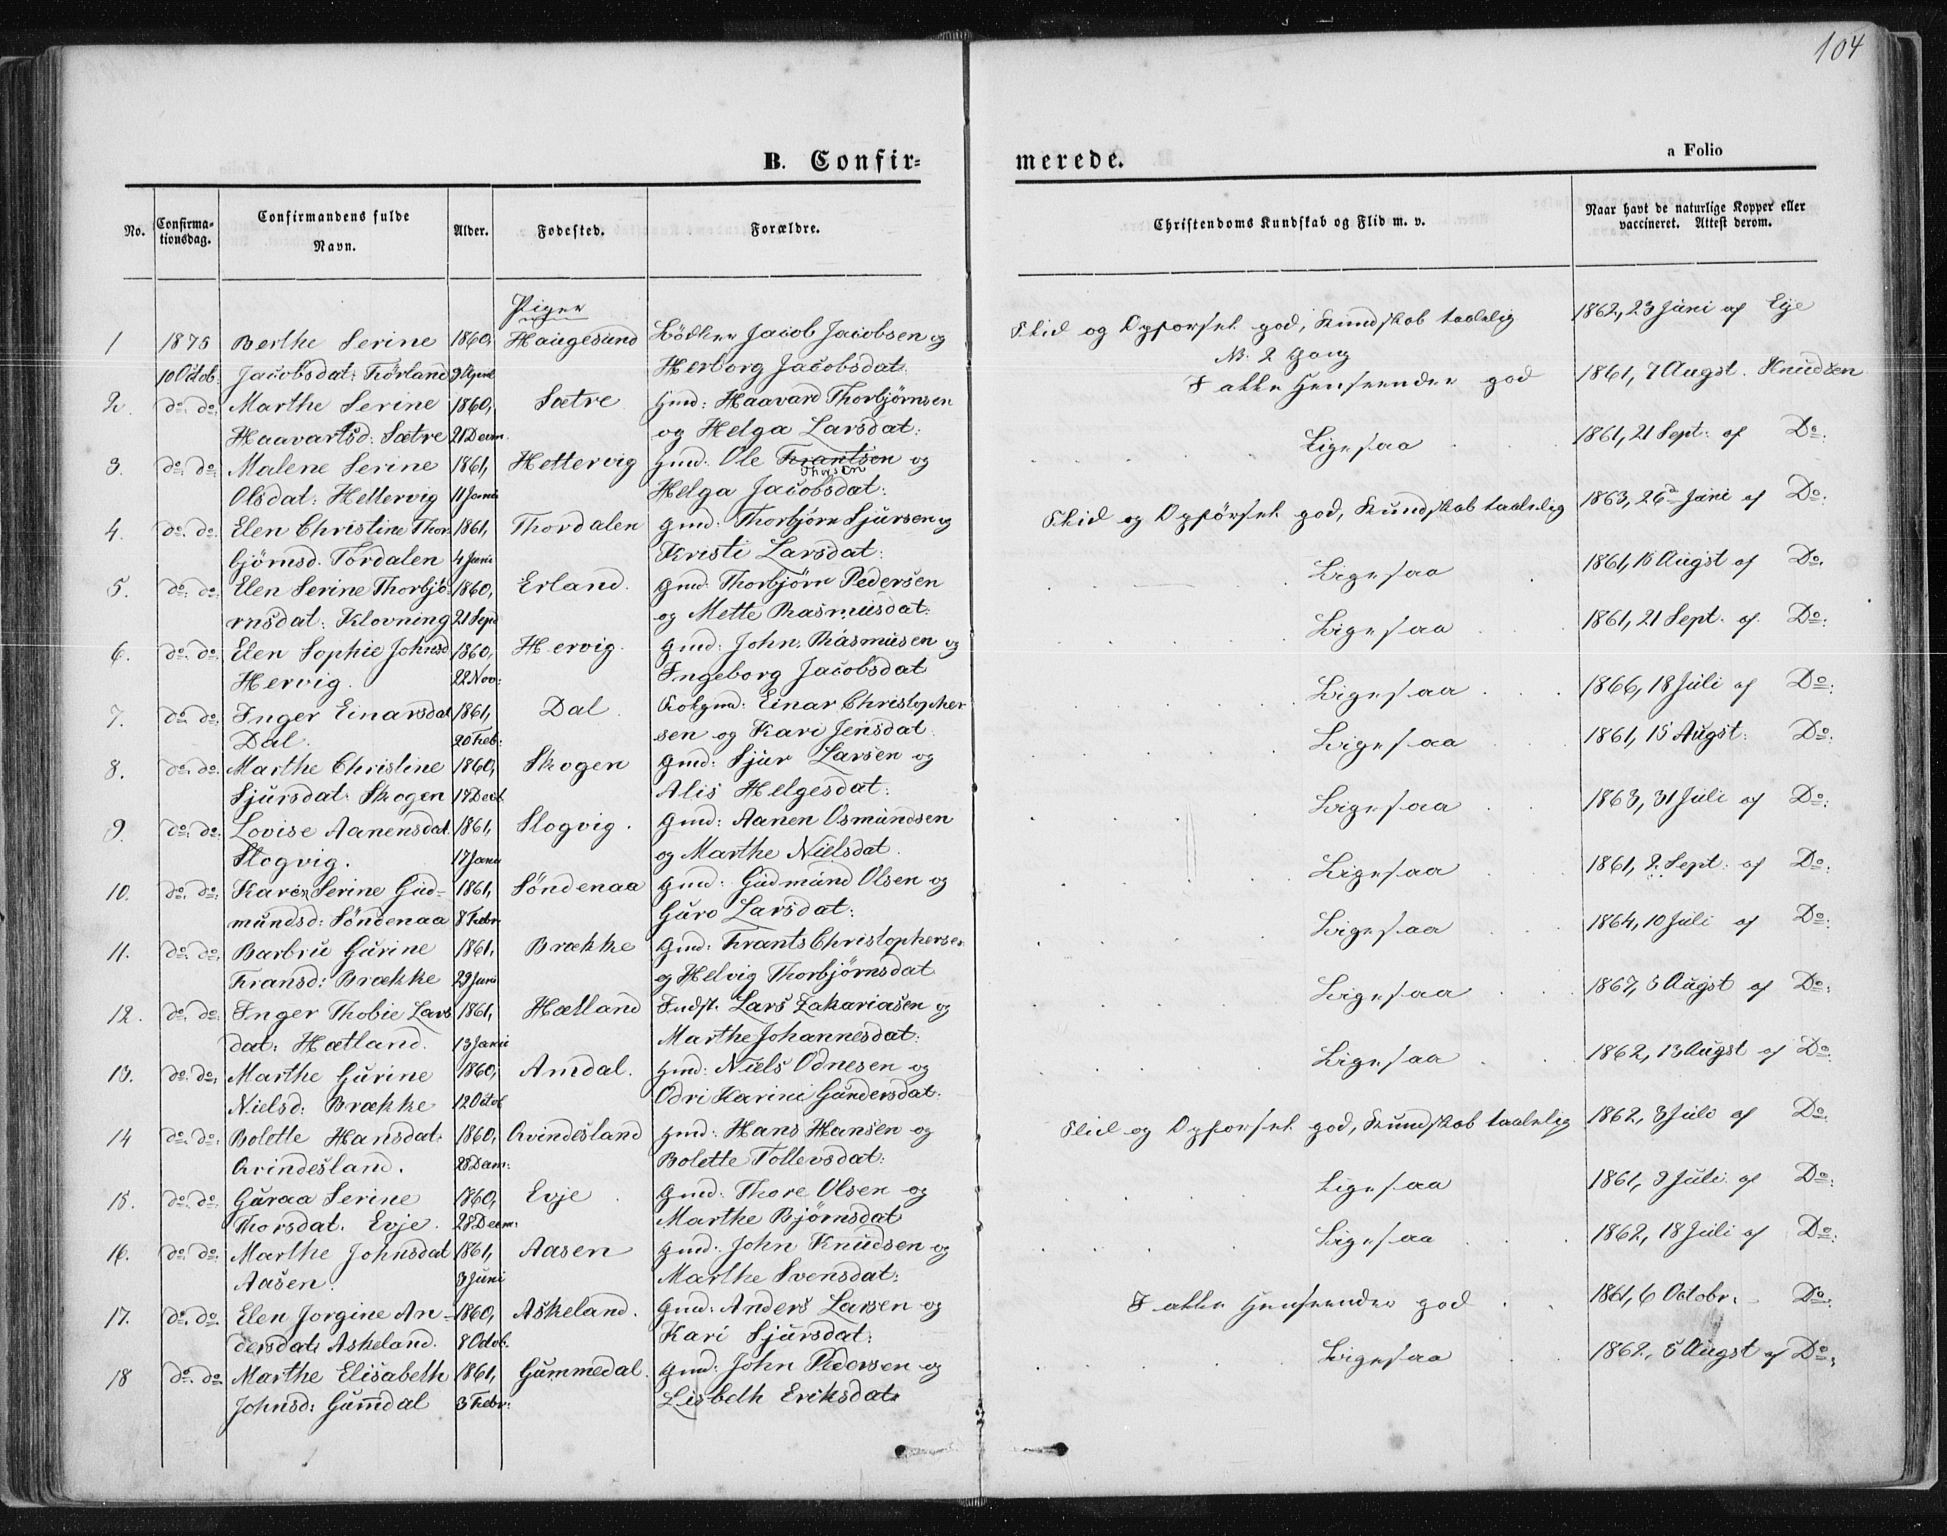 104
B. Confir=
merede.
a Folio
No.
Confirma-
tionsdag.
Confirmandens fulde
Navn.
Alder.
Fødested.
Forældre.
Christendoms Kundskab og Flid m. v.
Naar havt de naturlige Kopper eller
vaccineret. Attest derom.
Piger
1 1875 Berthe Serine 1860, Haugesund Bödker Jacob Jacobsen og Flid og Opførsel god, Kundskab taalelig 1862, 23 Juni af Eje
10 Octob. Jacobsdat: Körland 9 April Herborg Jacobsdat.
No. 2 Haug
2. do. do. Marthe Serine 1860, Sætre Gmd: Haavard Thorbjørnsen I alle Henseender god 1861, 7 Augst. Knudsen
Haavartsd: Sætre 21 Decm. og Helga Larsdat:
3. do. do. Malene Serine 1861, Hettervig Gmd. Ole Frantsen og Ligesaa 1861, 21 Sept. af Do:
Thorsen
Olsdat: Hettervig 11 Janu Helga Jacobsdat:
4. do. do. Elen Christine Thor 1861, Thordalen Gmd: Thorbjørn Sjursen og Flid og Opførsel god, Kundskab taalelig 1863, 26d Juni af Do.
björnsd. Tordalen 4 Juni Kristi Larsdat:
5. do. do. Elen Serine Thorbjö 1860, Erland. Gmd: Thorbjørn Pedersen Ligesaa 1861, 15 Augst af Do.
rnsdat: Klovning 21 Sept og Mette Rasmusdat:
6. do. do. Elen Sophie Johnsd 1860, Hervig. Gmd: John Rasmusen og Ligesaa 1861, 21 Sept. af. Do:
Hervig. 22 Nov: Ingeborg Jacobsdat
7. do. do. Inger Einarsdat 1861, Dal. Einar Christopher Ligesaa 1866, 18 Juli af Do:
Dal. 20 Feb: sen og Kari Jensdat.
8. do. do. Marthe Christine 1860, Skogen Gmd: Sjur Larsen og Ligesaa 1861, 15 Augst. Do:
Sjursdat: Skogen 17 Decb. Alis Helgesdat:
9. do. do. Lovise Aanensdat 1861, Slogvig. Gmd: Aanen Osmundsen Ligesaa 1863, 31 Juli af Do:
Slogvig. 17 Janu og Marthe Nielsdat.
10. do. do. Karen Serine Gud- 1861, Söndenaa Gmd: Gudmund Olsen og Ligesaa 1861, 2 Sept: af Do:
mundsd: Söndenaa 8 Febr Guro Larsdat:
11. do. do. Barbru Gurine 1861, Brække Gmd: Frants Christophersen Ligesaa 1864, 10 Juli af Do:
Fransd: Brække 29 Juni og Helvig Thorbjörnsdat
12. do. do. Inger Thobie Lars 1861, Hætland Indst. Lars Zakariasen og Ligesaa 1867, 5 Augst af Do:
dat: Hætland. 13 Janu Marthe Johannesdat:
13. do. do. Marthe Gurine 1860, Amdal. Gmd: Niels Odnesen og Ligesaa 1862, 13 Augst af Do.
Nielsd: Brække 12 Octob Odri Karine Gundersdat:
14 do. do. Bolette Hansdat: 1860, Qvindesland Gmd: Hans Hansen og Flid og Opførsel god, Kundskab taalelig 1862, 3 Juli af Do:
Qvindesland. Bolette Tollevsdat:
15. do. do. Guraa Serine 1860, Evje. Gmd: Thore Olsen og Ligesaa 1861, 9 Juli af Do:
Thorsdat. Evje. 28 Decm: Marthe Björnsdat
16. do. do. Marthe Johnsdat 1861, Aasen Gmd: John Knudsen og Ligesaa 1862, 18 Juli af Do:
Aasen. 3 Juni Marthe Svensdat:
17. do. do. Elen Jorgine An- 1860, Askeland. Gmd: Anders Larsen og I alle Henseender god 1861, 6 Octobr. Do:
dersdat: Askeland. 8 Octob. Kari Sjursdat:
18 do. do. Marthe Elisabeth 1861, Gummedal. Gmd: John Pedersen og Ligesaa 1862, 5 Augst af Do:
Johnsd: Gum̄dal 3 Febr: Lisbeth Eriksdat: